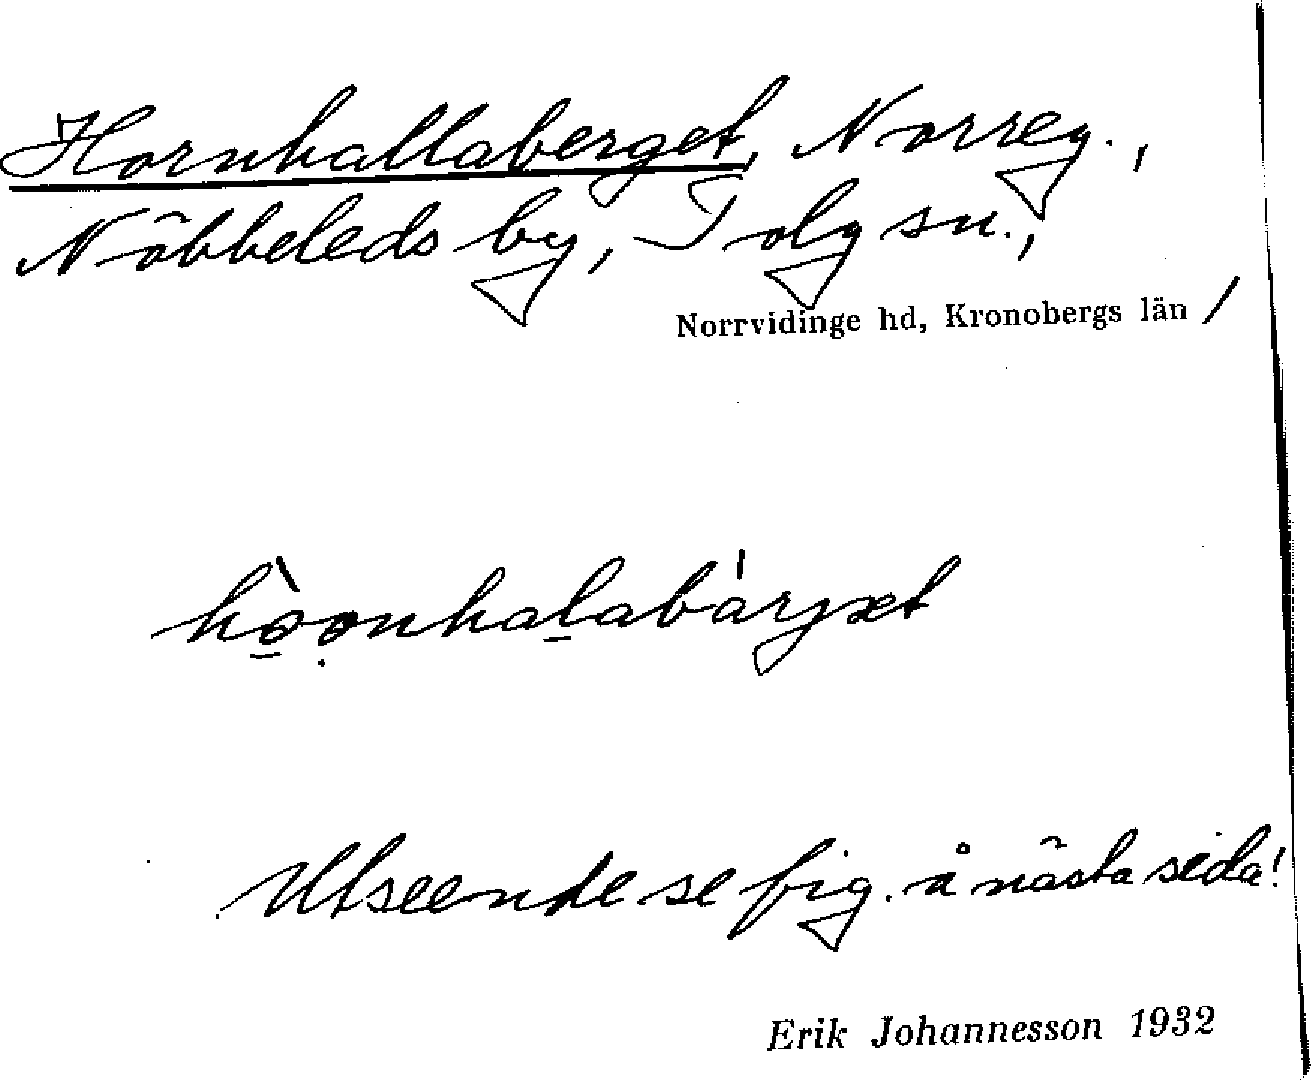 Hornhallaberget, Norreg.,
Nöbbeleds by, Tolg sn.,
Norrvidinge hd, Kronobergs län
hò̱ọnhaḻabárjət
Utseende se fig. å nästa sida!
Erik Johannesson 1932